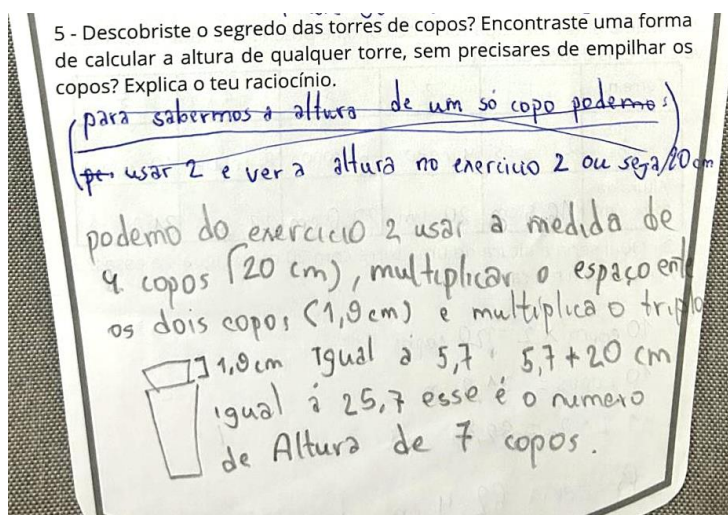 5 - Descobriste o segredo das torres de copos? Encontraste uma forma
de calcular a altura de qualquer torre, sem precisares de empilhar os
copos? Explica o teu raciocínio.
para sabermos a altura de um só copo podemos
usar 2 e ver a altura no exercicio 2 ou seja 20 cm
podemo do exercicio 2 usar a medida de
4 copos (20 cm), multiplicar o espaço ente
os dois copos (1,9cm) e multiplica o triplo
1,9cm Igual à 5,7 5,7 + 20 cm
igual à 25,7 esse é o numero
de Altura de 7 copos.